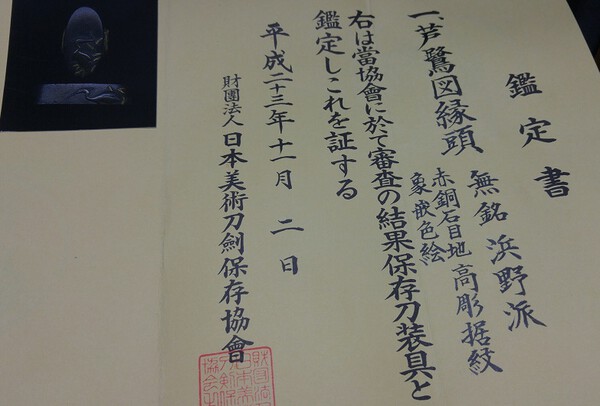 鑑定書
一、芦鷺図縁頭 無銘 浜野派
赤銅石目地 高彫据紋
象嵌色絵
右は當協會に於て審査の結果保存刀装具と
鑑定しこれを証する
平成二十三年十一月 二 日
財團法人日本美術刀劍保存協會